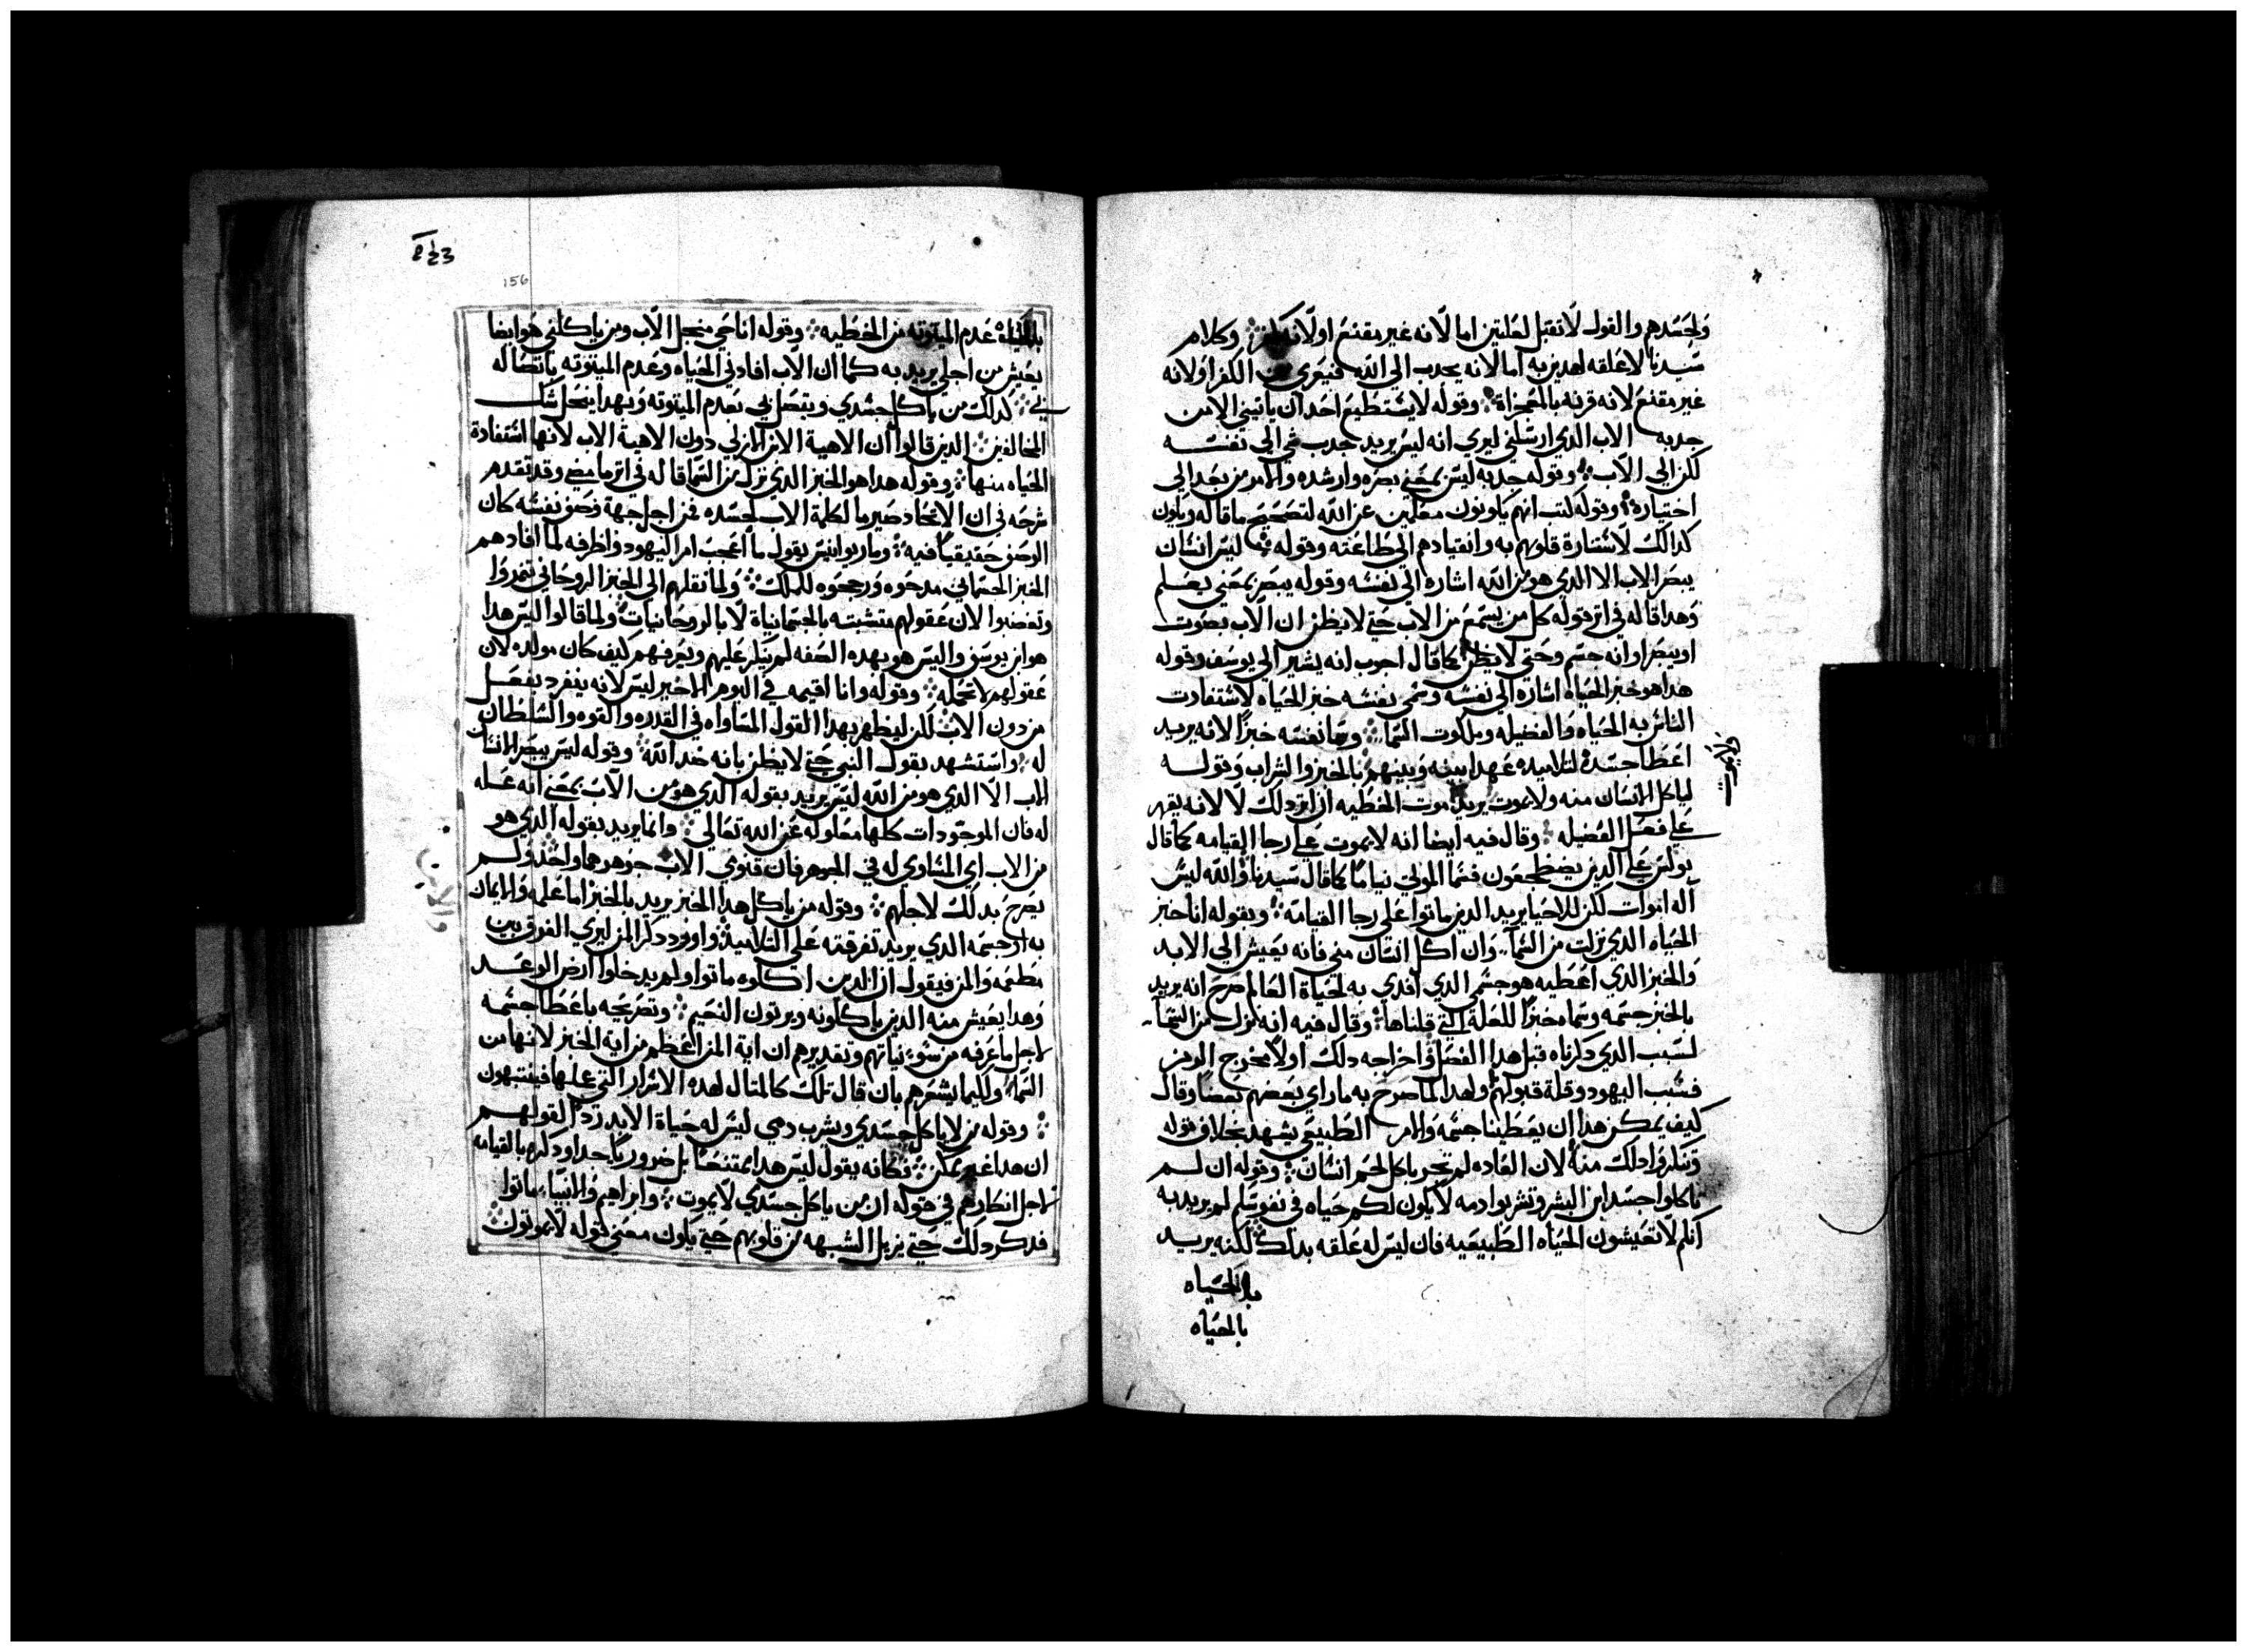 ولجسدهم والقول لا تقبل لعلتين اما لانه غير مقنع او لانه كفر وكلام
سيدنا لا علقه لهدين به اما لانه يجدب الي الله فيتعري من الكفر او لانه
غير مقنع لانه قرنه بالمعجزاة وقوله لا يستطيع احد ان ياتيني الا من
جدبه الاب الدي ارسلني ليري انه ليس يريد جدب في الي نفسه
لكن الي الاب وقوله جدبه ليس بمعني بصره وارشده والامر من بعد الي
اختياره وقوله كتب انهم يكونون معلمين عن الله لتصحيح ما قاله ويكون
كدالك لاستنارة قلوبهم به وانقيادهم الي طاعته وقوله ليس انسان
يبصر الاب الا الدي هو من الله اشاره الي نفسه وقوله يبصر بمعني يعلم
وهدا قاله في اتر قوله كل من يسمع من الاب حتي لا يظن ان الاب بصوت
او يبصر او انه جسم وحتي لا يظن كما قال احوب انه يشير الي يوسف وقوله
هدا هو خبز الحياه اشاره الي نفسه وسمي نفسه خبز الحياه لاستفادت
الناس به الحياه والفضيله وملكوت السما وسما نفسه خبزا لانه يريد
اعطا جسده لتلاميده عهدا بينه وبينهم بالخبز والشراب وقوله
لياكل الانسان منه ولا يموت يريد موت الخطيه ان اتر دلك لا لانه يقهر
علي فعل الفضيله وقال فيه ايضا انه لا يموت علي رجا القيامه كما قال
بولس علي الدين يضطجعون فسما الموتي نياما كما قال سيدنا والله ليس
اله اموات لكن للاحيا يريد الدين ماتوا علي رجا القيامه وبقوله انا خبز
الحياه الدي نزلت من السما وان اكل انسان مني فانه يعيش الي الابد
والخبز الدي اعطيه هو جسمي الدي افدي به لحياة العالم صرح انه يريد
بالخبز جسمه وسماه خبزا للعلة التي قلناها وقال فيه انه نزل من السما
لسبب الدي دكرناه قبل هدا الفصل واخراجه دلك اولا مخرج الرمز
فسبب اليهود وقلة قبولهم ولهدا لما صرح به ماراي بعضهم بعضا وقال
كيف يمكن هدا ان يعطينا جسمه والامر الطبيعي يشهد بخلاف قوله
وتنكروا دلك منه لان العاده لم تجر باكل لحم انسان وقوله ان لم
تاكلوا جسد ابن البشر وتشربوا دمه لا يكون لكم حياه في نفوسكم لم يريد به
انكم لا تعيشون الحياه الطبيعيه فان ليس له علقه بدلك لكنه يريد
بالحياه
بالحياه
156
بالحياه عدم الميتوته من الخطيه وقوله انا حي من اجل الاب ومن ياكلني هو ايضا
يعيش من اجلي يريد به كما ان الاب افادني الحياه وعدم الميتوته باتصاله
بي كدلك من ياكل جسدي ويتصل بي بعدم الميتوته وبهدا ينحل شك
المخالفين الدين قالوا ان الاهية الابن الازلي دون الاهية الاب لانها استفادة
الحياه منها وقوله هدا هو الخبز الدي نزل من السما قاله في اتر ما مضي وقد تقدم
شرحه في ان الاتحاد صير ما لكلمة الاب لجسده فمن اجل جهة وصف نفسه كان
الوصف حقيقيا فيه وماريوانيس يقول ما اعجب امر اليهود واظرفه لما افادهم
الخبز الجسماني مدحوه ورجحوه للملك ولما نقلهم الي الخبز الروحاني تمردوا
وتغضبوا لان عقولهم متشبته بالجسمانياة لا بالروحانيات ولما قالوا اليس هدا
هو ابن يوسف واليس هو بهده الصفه لم ينكر عليهم ويعرفهم كيف كان مولده لان
عقولهم لا تحمله وقوله وانا اقيمه في اليوم الاخير ليس لانه ينفرد بفعل
من دون الاب لكن ليظهر بهدا القول المساواه في القدره والقوه والسلطان
له واستشهد بقول النبي حتي لا يظن بانه ضد الله وقوله ليس يبصر انسان
الاب الا الدي هو من الله ليس يريد بقوله الدي هو من الاب بمعني انه عله
له فان الموجودات كلها معلوله عن الله تعالي وانما يريد بقوله الدي هو
من الاب اي المساوي له في الجوهر فان قنومي الاب جوهرهما واحد ولم
يصرح بدلك لاجلهم وقوله من ياكل هدا الخبز يريد بالخبز اما علمه والايمان
به او جسمه الدي يريد تفرقته علي التلاميد واورد دكر المن ليري الفرق بين
مطعمه والمن فيقول ان الدين اكلوه ماتوا ولم يدخلوا ارض الوعد
وهدا يعيش منه الدين ياكلونه ويرتون النعيم وتصريحه باعطا جسمه
لاجل ما عرفه من سو نياتهم وتقديرهم ان اية المن اعظم من اية الخبز لانها من
السما ولكيما يشعرهم بان قال تلك كالمتال لهده الاسرار التي عملها فينتبهون
وقوله من لا ياكل جسدي ويشرب دمي ليس له حياة الابد رد لقولهم
ان هدا غير ممكن فكانه يقول ليس هدا يمتنعا بل ضروريا جدا ودكره بالقيامه
لاجل انكارهم في قوله ان من ياكل جسدي لا يموت وابراهيم والانبيا ماتوا
فدكر دلك حتي يزيل الشبهه من قلوبهم حتي يكون معني قوله لا يموتون